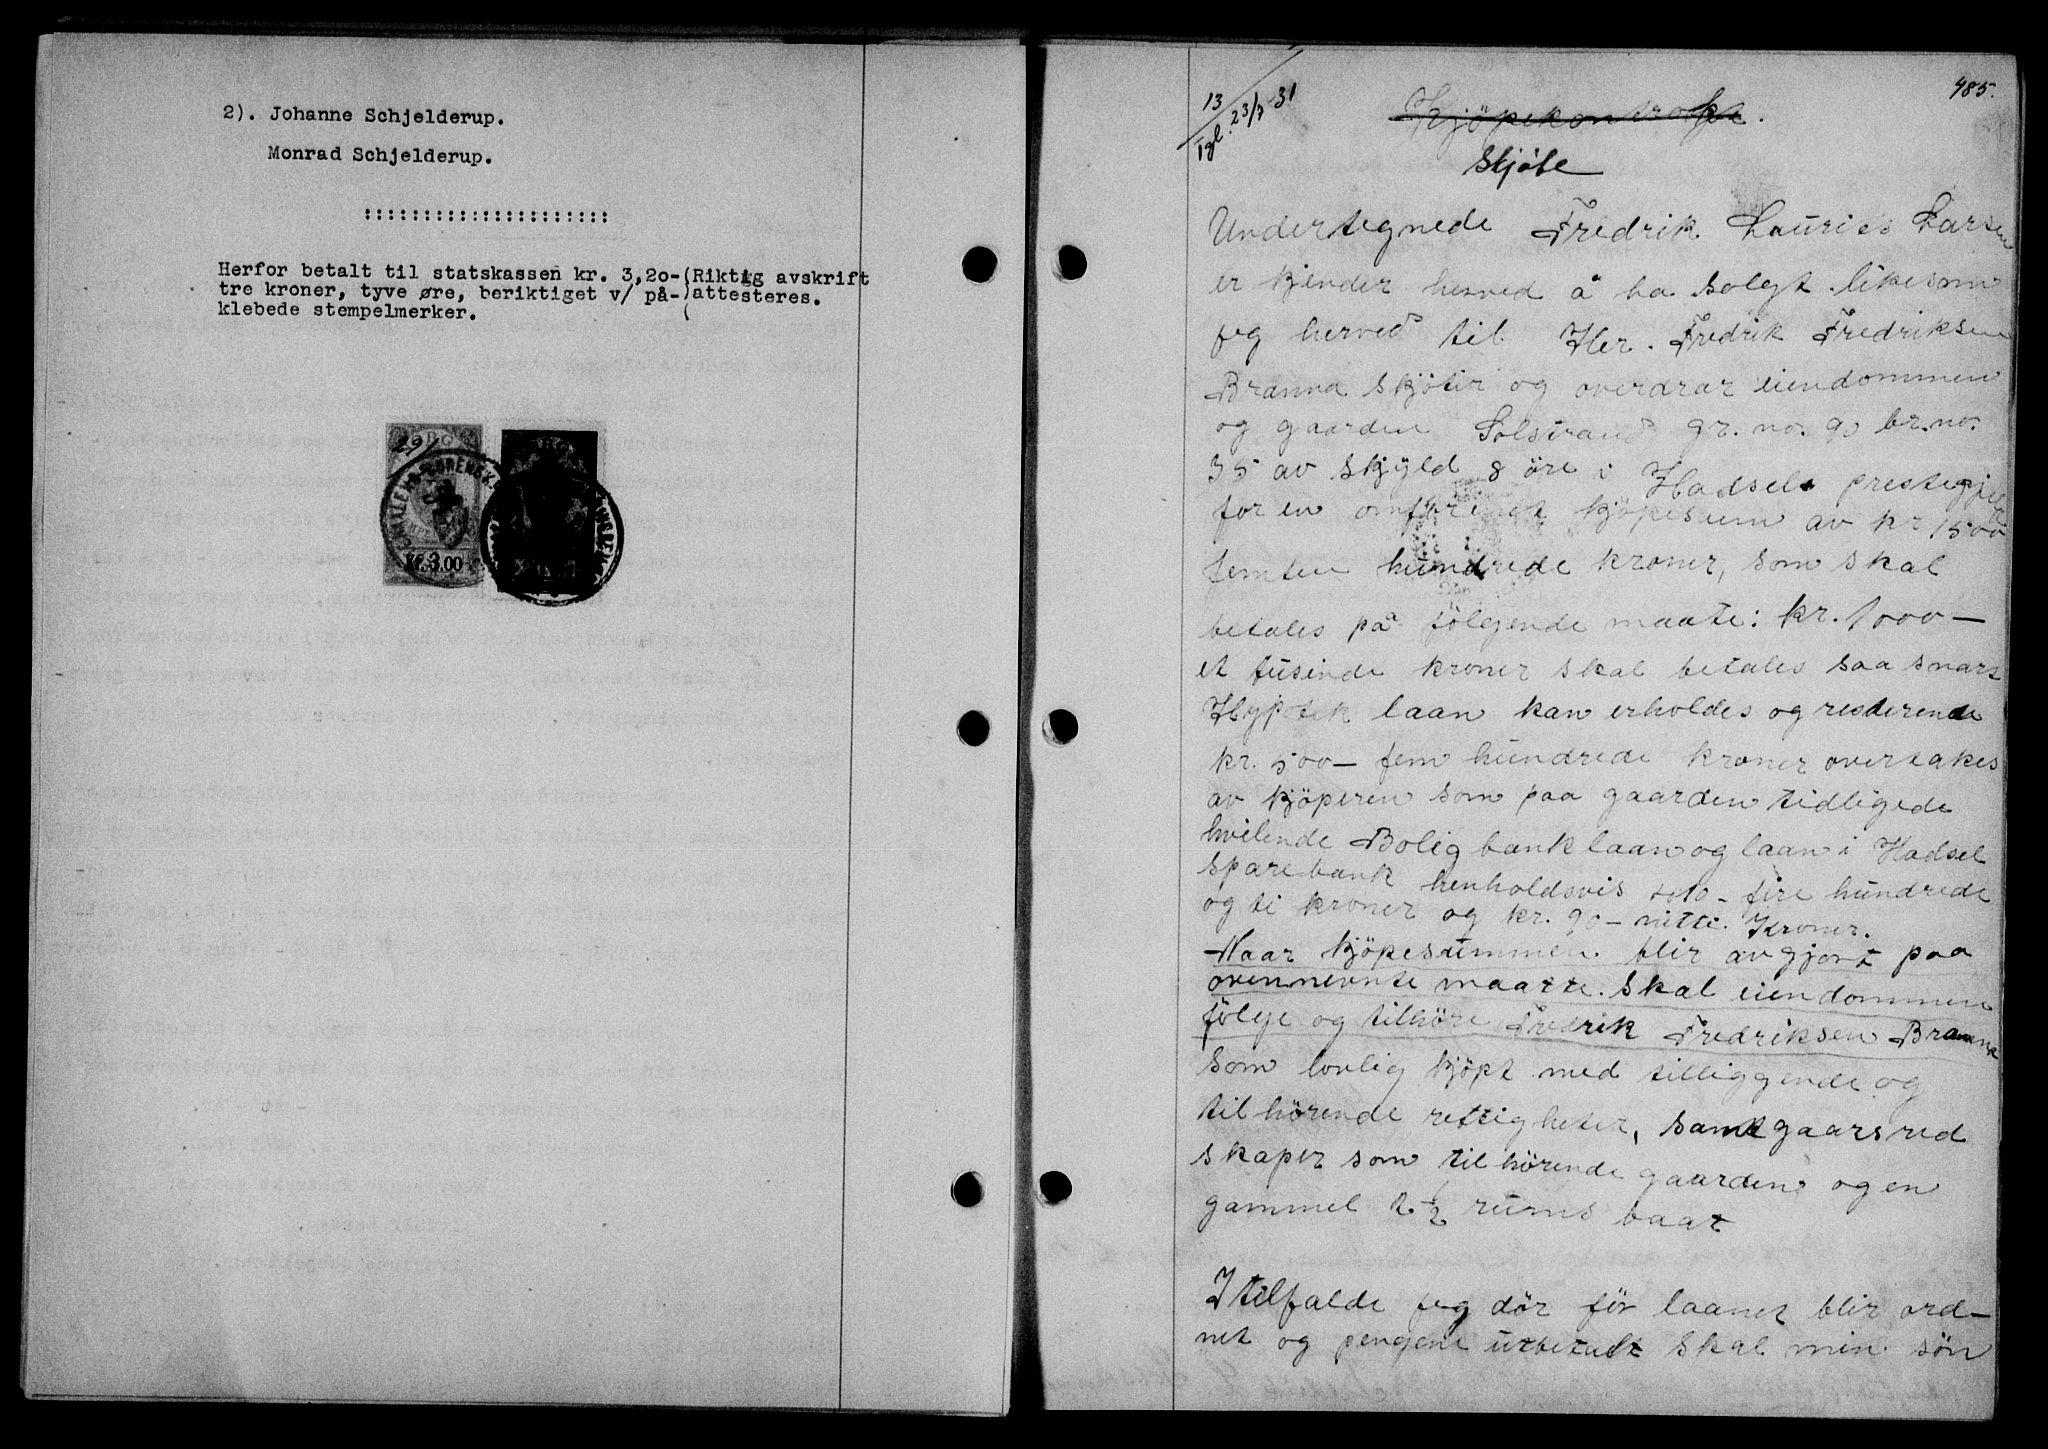 2). Johanne Schjelderup.
Monrad Schjelderup.
:::::::::::::::::::::
Herfor betalt til statskassen kr. 3,20-(Riktig avskrift
tre kroner, tyve øre, beriktiget v/ på-)attesteres.
klebede stempelmerker. (
29/
Kr.3.00
485.
13
Tgl. 23/7-31
Kjöpekontrakt.
Skjöte
Undertegnede Fredrik Laurits Larsen
erkjender herved å ha solgt likesom
jeg herved til Her. Fredrik Fredriksen
Branna skjöter og overdrar eiendommen
og gaarden Solstrand gr. no. 90 br. no.
35 av skyld 8 öre i Hadsel prestegjeld
for en omforenet kjöpesum av kr 1500
femten hundrede kroner, som skal
betales paa fölgende maate: kr. 1000-
et tusinde kroner skal betales saa snart
Hypotek laan kan erholdes og resterende
kr. 500- fem hundrede kroner overtakes
av kjöperen som paa gaarden tidligede
hvilende Bolig bank laan og laan i Hadsel
sparebank henholdsvis 410- fire hundrede
og ti kroner og kr. 90- nitti Kroner.
Naar kjöpesummen blir avgjort paa
ovennevnte maate. Skal eiendommen
fölge og tilhöre Fredrik Fredriksen Branna
som lovlig kjöpt med tilliggende og
tilhörende rettigheter, samt gaarsred
skaper som tilhörende gaarden og en
gammel 2 1/2 rums baat
I tilfalde jeg dör för laanet blir ord-
net og pengene utbetalt skal min sön